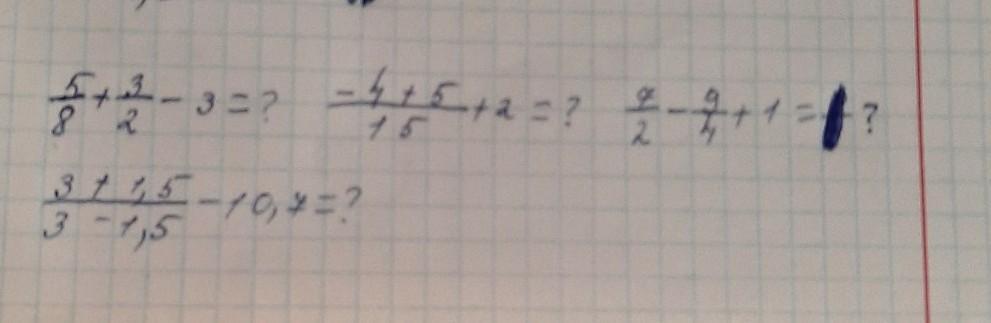 5/8 + 3/2 - 3 = ? (-4 + 5)/15 + 2 = ? 7/2 - 9/4 + 1 = ?
(3 + 1,5)/(3 - 1,5) - 10,7 = ?